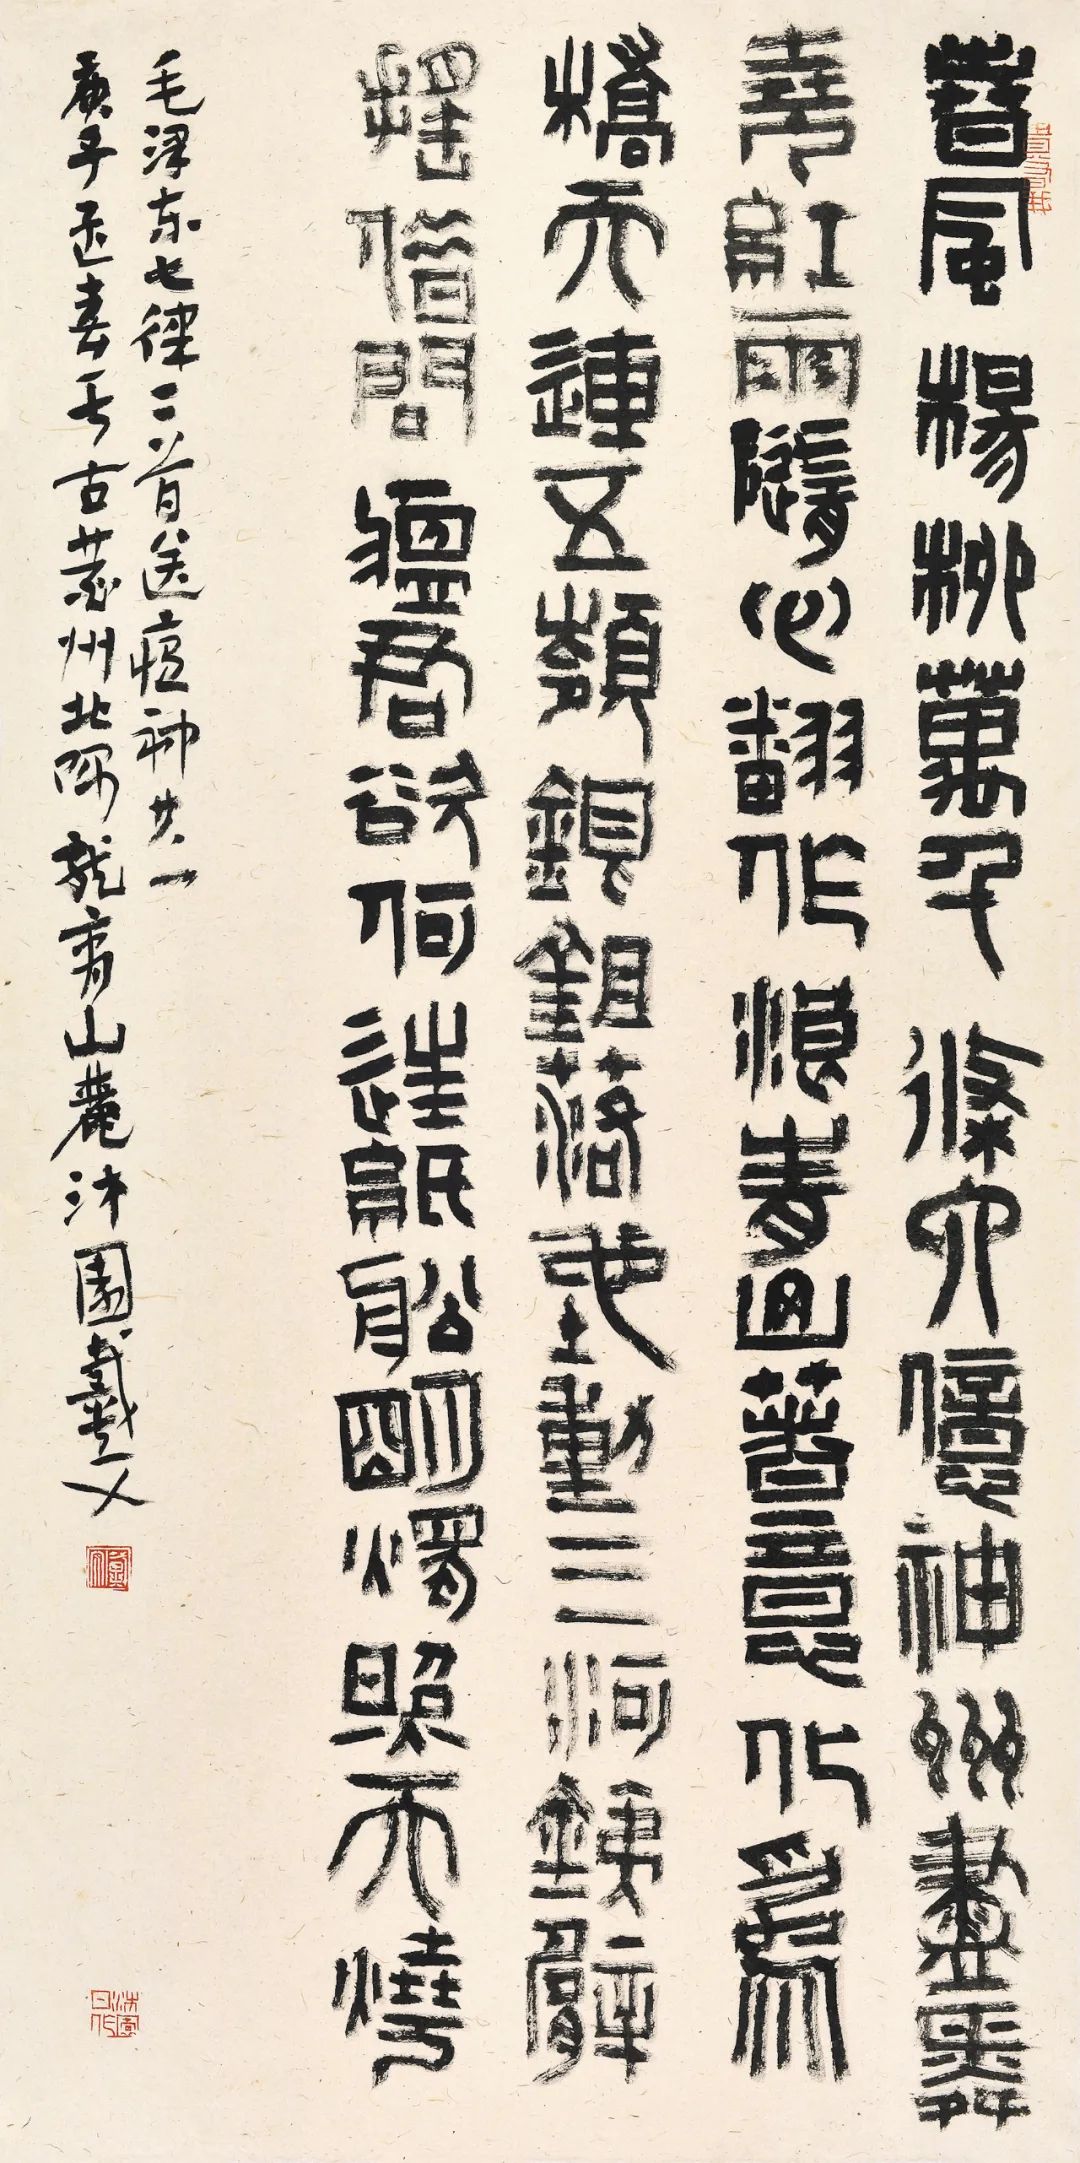 春風楊柳萬千條六億神州盡舜
堯紅雨隨心翻作浪青山著意化為
橋天連五嶺銀鉏落地動三河鐵臂
搖借問瘟君欲何往紙船明燭照天燒
毛泽东七律二首送瘟神其一
庚子孟春于古州北隅龍脊山麓沐園戴文